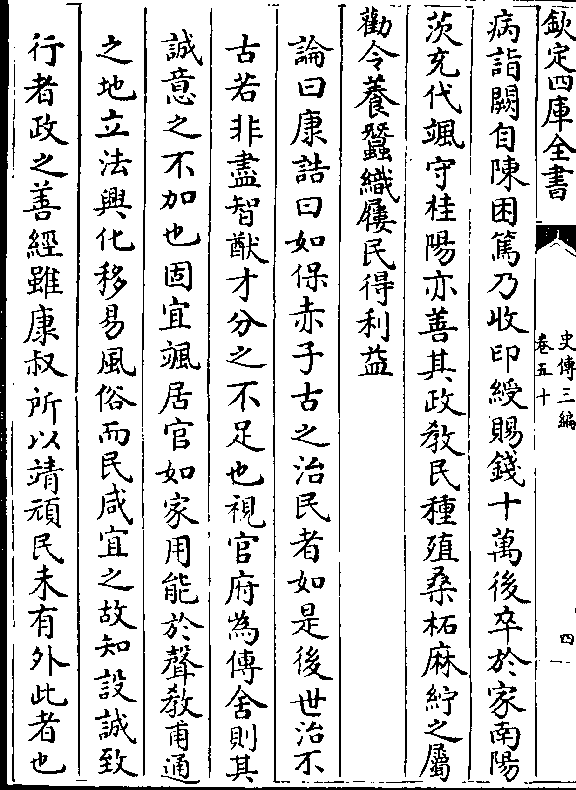 欽定四庫全書
史傳三編
卷五十
四
病詣闕自陳困篤乃收印綬賜錢十萬後卒於家南陽
茨充代颯守桂陽亦善其政教民種殖桑柘麻紵之屬
勸令養蠶織屨民得利益
論曰康誥曰如保赤子古之治民者如是後世治不
古若非盡智猷才分之不足也視官府為傳舍則其
誠意之不加也固宜颯居官如家用能於聲教甫通
之地立法興化移易風俗而民咸宜之故知設誠致
行者政之善經雖康叔所以靖頑民未有外此者也